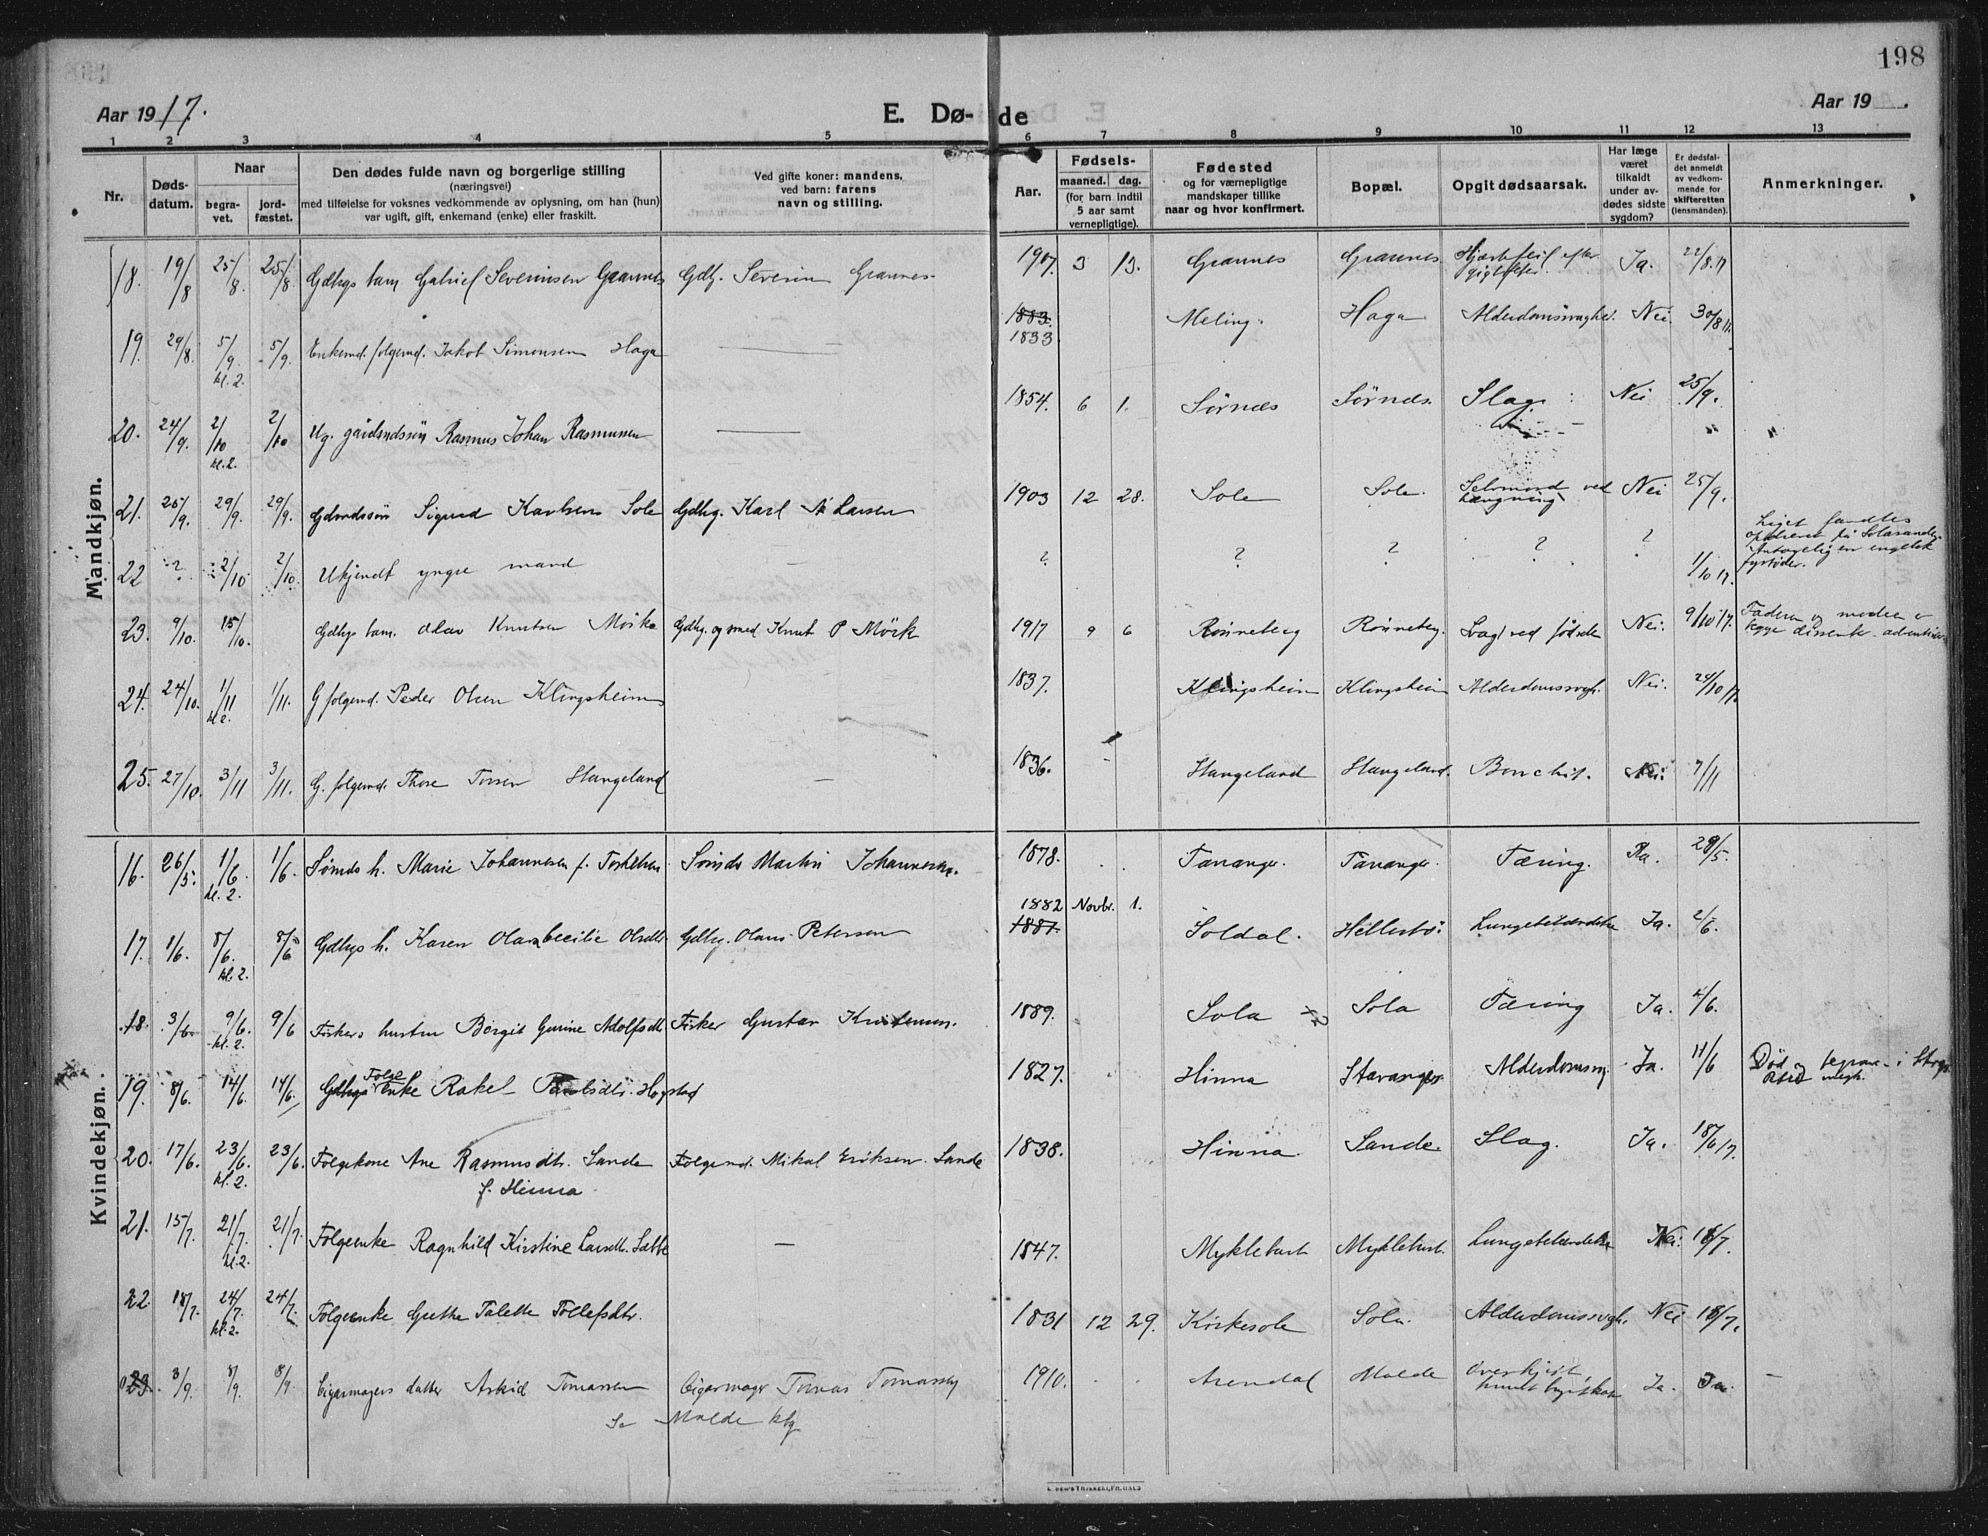 198
Aar 1917.
E. Døde
Aar 19 .
1 2 3 4 5 6 7 8 9 10 11 12 13
Nr.
Døds-
datum.
Naar
begra-
vet.
jord-
fæstet.
Den dødes fulde navn og borgerlige stilling
(næringsvei)
med tilføielse for voksnes vedkommende av oplysning, om han (hun)
var ugift, gift, enkemand (enke) eller fraskilt.
Ved gifte koner: mandens.
ved barn: farens
navn og stilling.
Aar.
Fødsels-
maaned. dag.
(for barn indtil
5 aar samt
vernepligtige).
Fødested
og for værnepligtige
mandskaper tillike
naar og hvor konfirmert.
Bopæl.
Opgit dødsaarsak.
Har læge
været
tilkaldt
under av-
dødes sidste
sygdom?
Er dødsfal-
det anmeldt
av vedkom-
mende for
skifteretten
(lensmanden).
Anmerkninger.
Mandkjøn.
18. 19/8 25/8. 25/8. Gdbgs barn Gabriel Severinsen Grannes Gdbg. Severin Grannes 1907. 3 13. Grannes Grannes Hjærtefeil efter Ja. 22/8.17
19. 29/8. 5/9. kl. 2. 5/9. Enkemd. folgemd. Jakob Simonsen Haga 1883. 1833 Meling. Haga Alderdomssvaghed. Nei. 30/8 17.
20. 24/9. 2/10 kl. 2. 2/10 Ug. gårdmdssøn Rasmus Johan Rasmussen 1854. 6 1. Sørnes Sørnes. Slag Nei 25/9.
21. 25/9. 29/9. 29/9. Gdmdssøn Sigurd Karlsen Sole Gdbg. Karl A Larsen 1903 12 28. Sole Sole. Selvmord ved hængning Nei 25/9.
22 ? 2/10 2/10. Ukjendt yngre mand ? ? ? ? ? 1/10 17. Liget fandtes
opdrevet på Solasanden.
Antagelig en engelsk
fyrbøder.
23. 9/10. 15/10. Gdbgs barn. Olav Knutsen Mørk Gdbg. og smed Knut P Mörk 1917 9 6 Rönneberg Rönneberg. Svag ved födsele Nei. 9/10 17. Faderen og moder er
begge dissenter - adventister
24. 24/10. 1/11 kl 2. 1/11. G folgemd. Peder Olsen Klingsheim 1837. Klingsheim Klingsheim Alderdomssvagh. Nei. 24/10 17.
25. 27/10. 3/11 3/11. G. folgemd. Thore Toresen Stangeland 1836. - Stangeland Stangeland. Bronchit. Nei. 7/11
Kvindekjøn.
16. 26/5. 1/6. kl. 2. 1/6. Sømds h. Marie Johannesen f. Torkelsen Sømds Martin Johannesen. 1878. Tananger. Tananger. Tæring. Ja. 29/5.
17. 1/6. 8/6. kl. 2. 8/6 Gdbgs h. Karen Olava Cecilie Olsdtr. Gdbg. Olaus Petersen 1882 Novbr. 1. 1887. Soldal. Hellestø. Lungebetændelse Ja. 2/6.
18. 3/6. 9/6. kl. 2. 9/6 Fiskers hustru Borgit Gurine Adolfsdtr. Fisker Gustav Kristensen. 1889. Sola Sola Tæring Ja. 4/6.
19. 8/6. 14/6. 14/6. Gdbgs Folge Enke Rakel Paulsdtr. Hogstad 1827. Hinna Stavanger Alderdomssvg. Ja. 11/6 Død og begravet i Stvgr.
20. 17/6. 23/6. kl. 2. 23/6. Folgekone Ane Rasmusdtr. Sande Folgemd. Mikal Eriksen Sande 1838. Hinna. Sande. Slag. Ja. 18/6 17.
f. Hinna
21. 15/7. 21/7. kl. 2. 21/7. Folgeenke Ragnhild Kirstine Larsdtr. Sætte 1847. Myklebust Myklebust. Lungebetændelse Nei. 16/7.
22 18/7. 24/7. kl. 2. 24/7. Folgeenke Grethe Talette Tollefsdtr. 1831 12 29. Kirkesole Sola. Alderdomssvagh. Nei 18/7.
23. 3/9. 8/9. 8/9. Cigarmagers datter Astrid Tomassen Cigarmager Tomas Tomassen 1910. Arendal Molde Overkjørt, Ja. Ja. -
Se Molde kbg